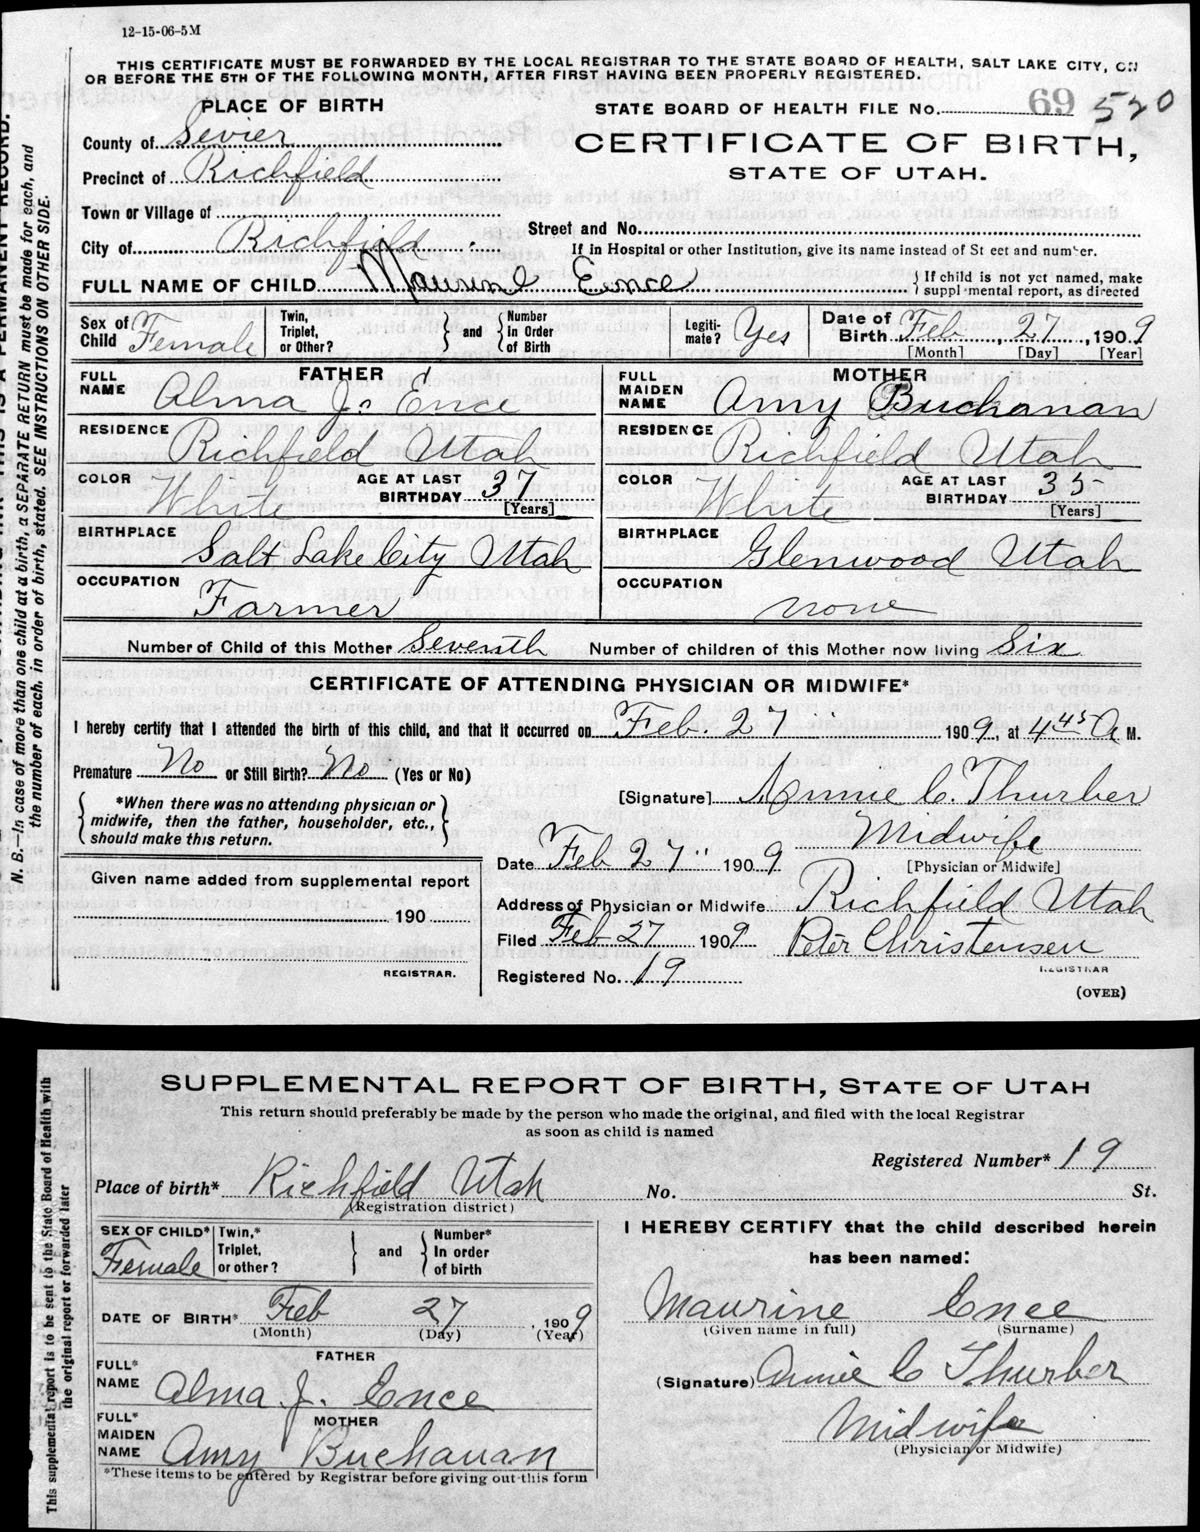 12-15-06-5M
THIS CERTIFICATE MUST BE FORWARDED BY THE LOCAL REGISTRAR TO THE STATE BOARD OF HEALTH, SALT LAKE CITY, ON
OR BEFORE THE 5TH OF THE FOLLOWING MONTH, AFTER FIRST HAVING BEEN PROPERLY REGISTERED.
N. B.—In case of more than one child at a birth, a SEPARATE RETURN must be made for each, and
the number of each, in order of birth, stated. SEE INSTRUCTIONS ON OTHER SIDE.
PLACE OF BIRTH
STATE BOARD OF HEALTH FILE No. 69 520
County of Sevier
CERTIFICATE OF BIRTH,
STATE OF UTAH.
Precinct of Richfield
Town or Village of
Street and No.
City of Richfield
If in Hospital or other Institution, give its name instead of St eet and number.
FULL NAME OF CHILD Maurine Ence
If child is not yet named, make
suppl mental report, as directed
Sex of Child Female
Twin, Triplet, or Other?
and
Number in Order of Birth
Legiti-mate? Yes
Date of Birth Feb 27, 1909
[Month] [Day] [Year]
FATHER
MOTHER
FULL NAME Alma J. Ence
FULL MAIDEN NAME Amy Buchanan
RESIDENCE Richfield Utah
RESIDENCE Richfield Utah
COLOR White AGE AT LAST BIRTHDAY 37 [Years]
COLOR White AGE AT LAST BIRTHDAY 35 [Years]
BIRTHPLACE Salt Lake City Utah
BIRTHPLACE Glenwood Utah
OCCUPATION Farmer
OCCUPATION none
Number of Child of this Mother Seventh Number of children of this Mother now living Six
CERTIFICATE OF ATTENDING PHYSICIAN OR MIDWIFE*
I hereby certify that I attended the birth of this child, and that it occurred on Feb. 27 1909, at 4 45 A M.
Premature No or Still Birth? No (Yes or No)
*When there was no attending physician or
midwife, then the father, householder, etc.,
should make this return.
[Signature] Annie C. Thurber
Midwife
[Physician or Midwife]
Date Feb 27" 1909
Given name added from supplemental report
190
REGISTRAR.
Address of Physician or Midwife Richfield Utah
Filed Feb 27 1909 Peter Christensen
REGISTRAR
Registered No. 19
(OVER)
SUPPLEMENTAL REPORT OF BIRTH, STATE OF UTAH
This return should preferably be made by the person who made the original, and filed with the local Registrar
as soon as child is named
This supplemental report is to be sent to the State Board of Health with
the original report or forwarded later
Registered Number* 19
Place of birth* Richfield Utah
(Registration district)
No. St.
SEX OF CHILD* Female
Twin,* Triplet, or other?
and
Number* In order of birth
DATE OF BIRTH* Feb 27, 1909
(Month) (Day) (Year)
FATHER
FULL* NAME Alma J. Ence
MOTHER
FULL* MAIDEN NAME Amy Buchanan
*These items to be entered by Registrar before giving out this form
I HEREBY CERTIFY that the child described herein
has been named:
Maurine Ence
(Given name in full) (Surname)
(Signature) Annie C Thurber
Midwife
(Physician or Midwife)